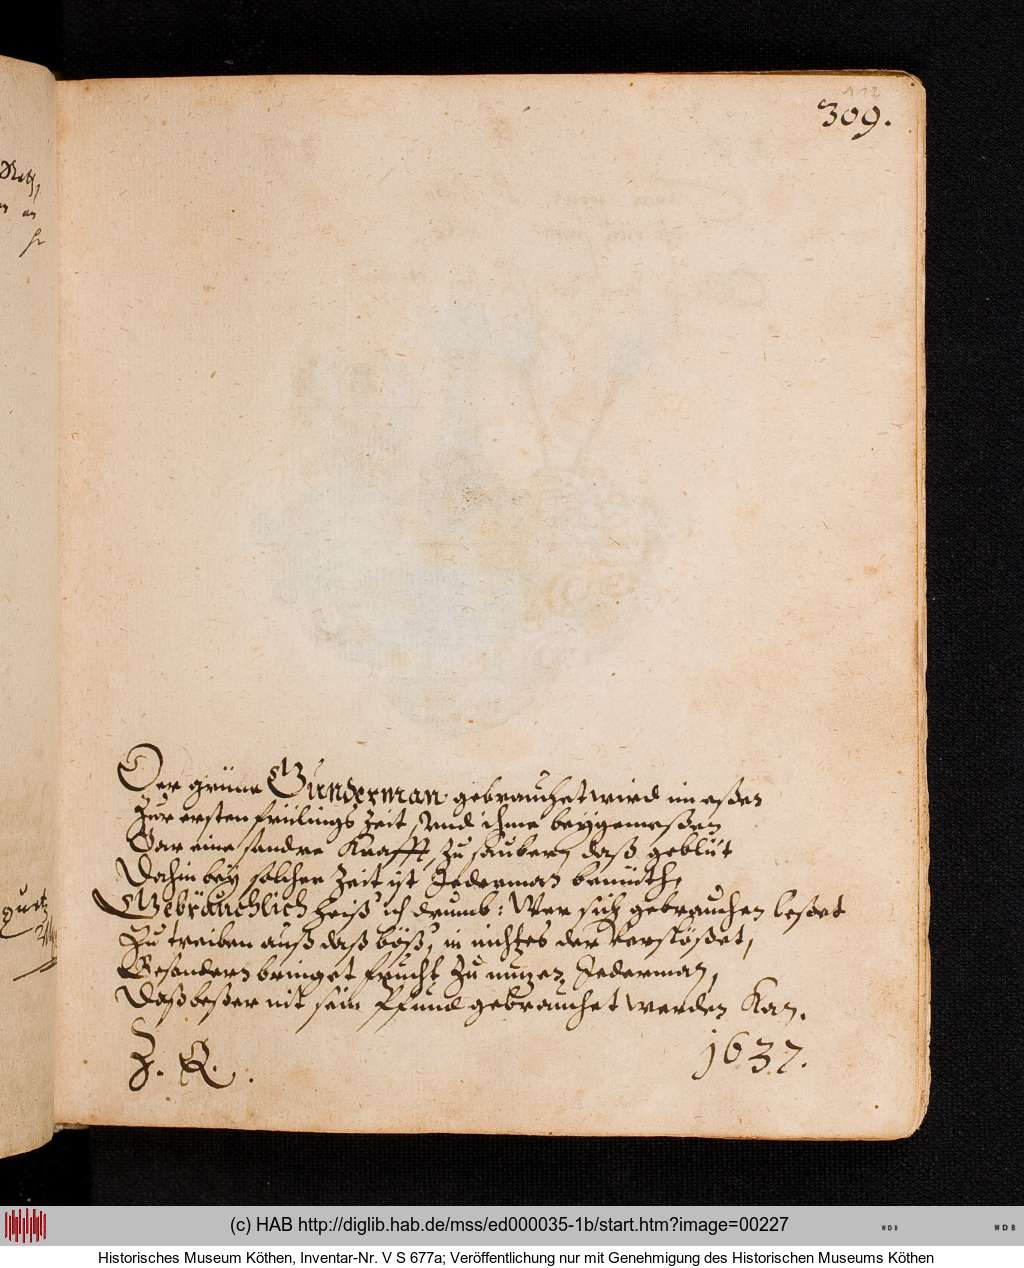 309.
Der grüne Gunderman gebrauchet wird im eßen
Zur ersten frülings Zeit, Und ihme beÿgemeßen
Gar eine sandre Krafft, Zu saubern daß geblüt
Dahin beÿ solcher Zeit ist Jederman bemüth,
Gebräuchlich heiß ich drumb: Wer sich gebrauchen leßet
Zu treiben auß daß böß, in nichtes der verstößet,
Besondern bringet frucht Zu nuzen Jederman,
Daß beßer nit sein Pfund gebrauchet werden Kan.
1637.
(c) HAB http://diglib.hab.de/mss/ed000035-1b/start.htm?image=00227
WDB
WDB
Historisches Museum Köthen, Inventar-Nr. V S 677a; Veröffentlichung nur mit Genehmigung des Historischen Museums Köthen